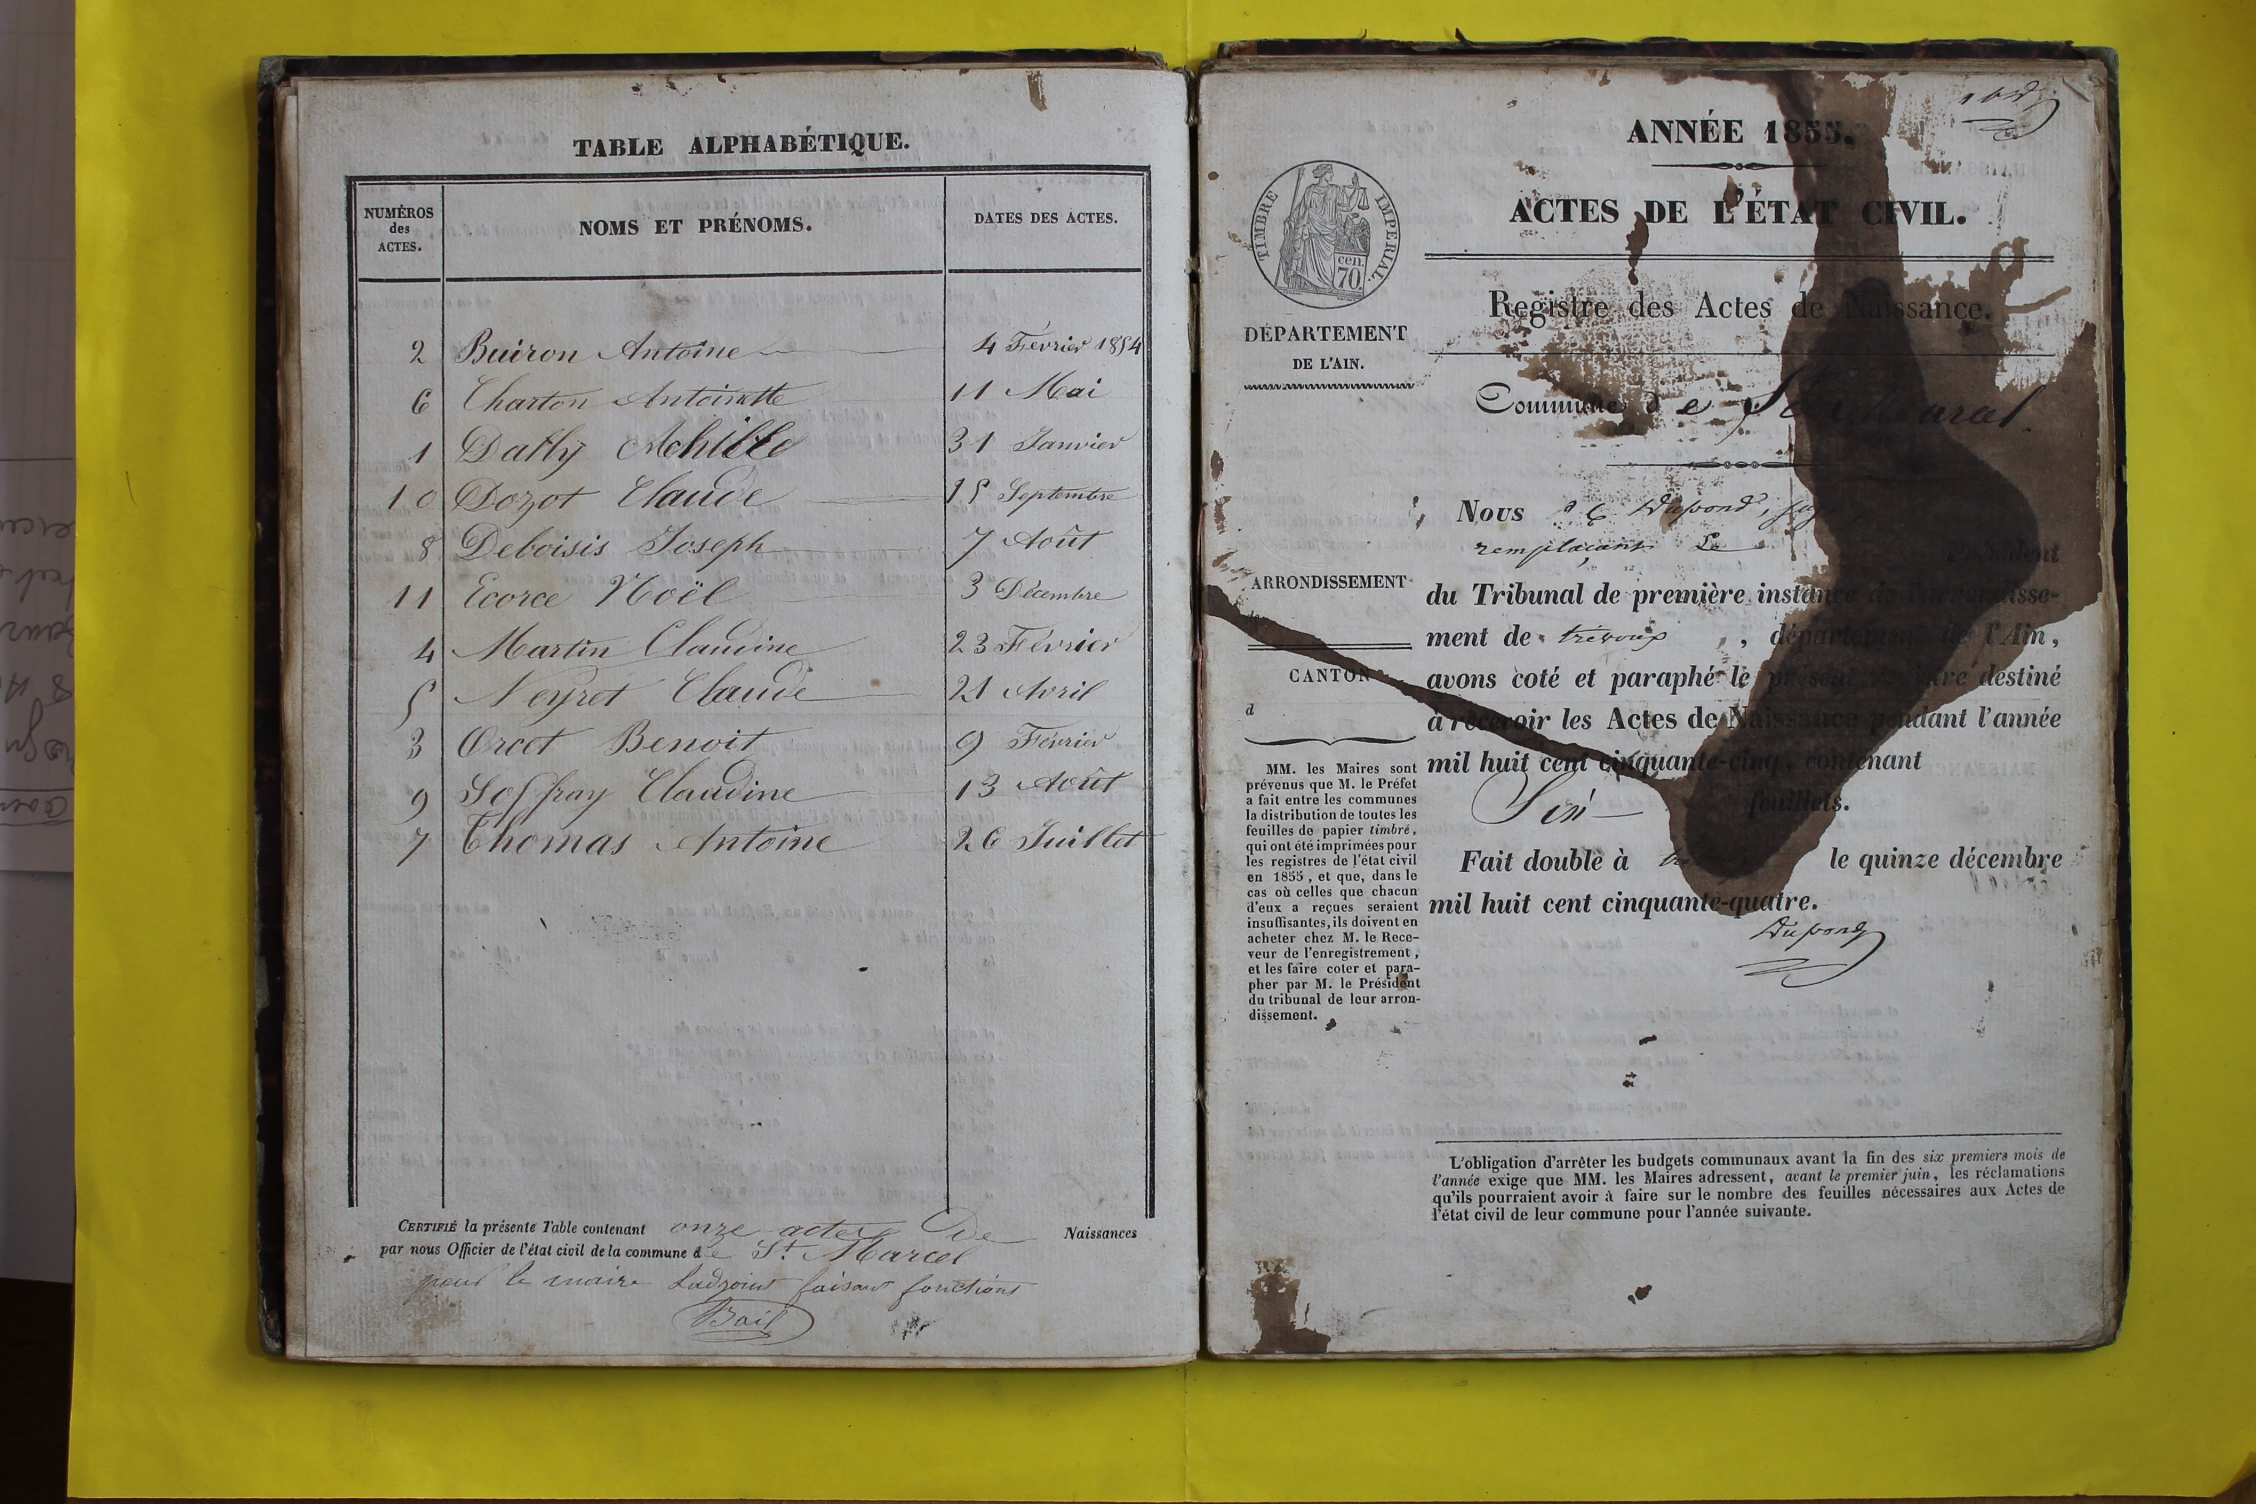 TABLE ALPHABÉTIQUE.
NUMÉROS des ACTES. NOMS ET PRÉNOMS. DATES DES ACTES.
2 Buiron Antoine 4 Février 1854
6 Charton Antoinette 11 Mai
1 Dally Achille 31 Janvier
10 Dozot Claude 15 Septembre
8 Deboisis Joseph 7 Août
11 Ecorce Noël 3 Décembre
4 Martin Claudine 23 Février
5 Neyret Claude 21 Avril
3 Orcet Benoit 9 Février
9 Soffray Claudine 13 Août
7 Thomas Antoine 26 Juillet
CERTIFIÉ la présente Table contenant onze actes De Naissances
par nous Officier de l'état civil de la commune de St Marcel
pour le maire Ladjoint faisant fonctions
Bail
ANNÉE 1855.
ACTES DE L'ÉTAT CIVIL.
TIMBRE IMPERIAL.
cen. 70.
DÉPARTEMENT
DE L'AIN.
Registre des Actes de Naissance.
Commune de St Marcel.
Nous Dupond, juge
remplaçant Le Président
ARRONDISSEMENT
du Tribunal de première instance de l'arrondisse-
ment de trévoux, département de l'Ain,
CANTON
d
avons coté et paraphé le présent registre destiné
à recevoir les Actes de Naissance pendant l'année
mil huit cent cinquante-cinq, contenant
Six feuillets.
Fait double à le quinze décembre
mil huit cent cinquante-quatre.
Dupond
MM. les Maires sont
prévenus que M. le Préfet
a fait entre les communes
la distribution de toutes les
feuilles de papier timbré,
qui ont été imprimées pour
les registres de l'état civil
en 1855, et que, dans le
cas où celles que chacun
d'eux a reçues seraient
insuffisantes, ils doivent en
acheter chez M. le Rece-
veur de l'enregistrement,
et les faire coter et para-
pher par M. le Président
du tribunal de leur arron-
dissement.
L'obligation d'arrêter les budgets communaux avant la fin des six premiers mois de
l'année exige que MM. les Maires adressent, avant le premier juin, les réclamations
qu'ils pourraient avoir à faire sur le nombre des feuilles nécessaires aux Actes de
l'état civil de leur commune pour l'année suivante.